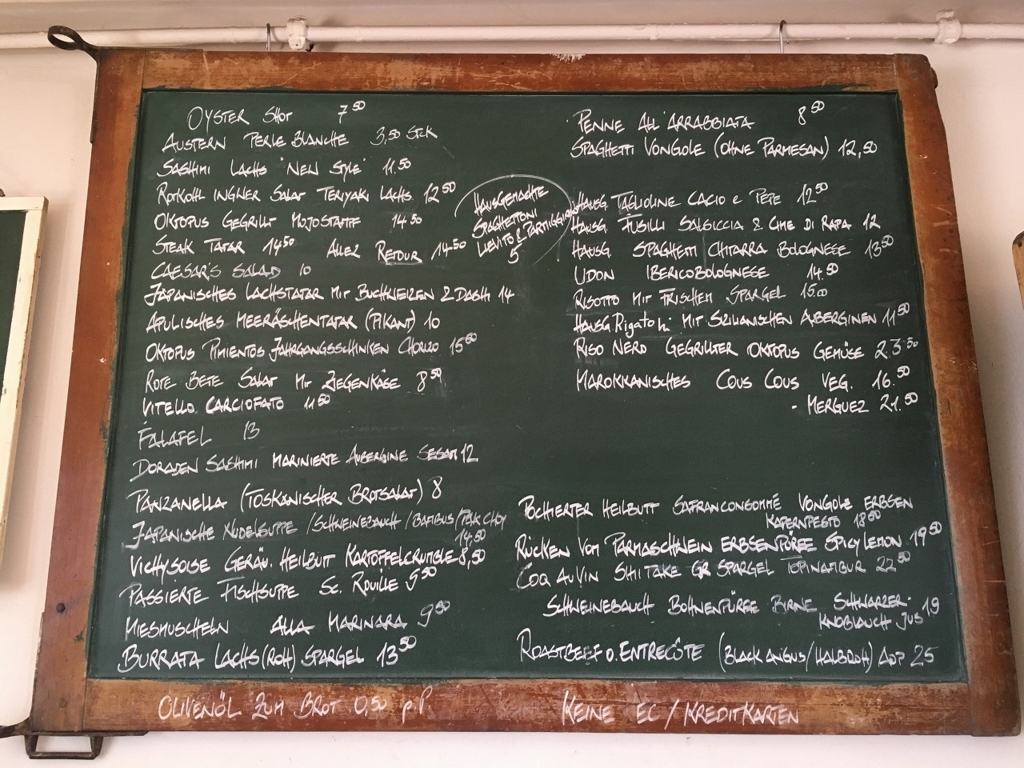 OYSTER SHOT 7,50
AUSTERN PERLE BLANCHE 3,50 STCK
SASHIMI LACHS "NEW STYLE" 11.50
ROTKOHL INGWER SALAT TERIYAKI LACHS 12 50
OKTOPUS GEGRILLT MOJO 14 50
STEAK TATAR 14 50 ALLEZ RETOUR 14 50
CAESAR'S SALAD 10
JAPANISCHES LACHSTATAR MIT BUCHWEIZEN & DASHI 14
APULISCHES MEERÄSCHENTATAR (PIKANT) 10
OKTOPUS PIMIENTOS JAHRGANGSSCHINKEN CHORIZO 15 50
ROTE BETE SALAT MIT ZIEGENKÄSE 8 50
VITELLO CARCIOFATO 11 50
FALAFEL 13
DORADEN SASHIMI MARINIERTE AUBERGINE SESAM 12
PANZANELLA (TOSKANISCHER BROTSALAT) 8
JAPANISCHE NUDELSUPPE / SCHWEINEBAUCH / / PAK CHOY
14.50
VICHYSOISE GERÄU. HEILBUTT KARTOFFELCRUMBLE 8,50
PASSIERTE FISCHSUPPE SC. ROUILLE 9 50
MIESMUSCHELN ALLA MARINARA 9 50
BURRATA LACHS (ROH) SPARGEL 13 50
HAUSGEMACHTE
SPAGHETTONI
LIEVITO & PARMIGGIANO
5
PENNE ALL'ARRABBIATA 8 50
SPAGHETTI VONGOLE (OHNE PARMESAN) 12,50
HAUSG TAGLIOLINE CACIO e PEPE 12 50
HAUSG FUSILLI SALSICCIA & CIME DI RAPA 12
HAUSG SPAGHETTI CHITARRA BOLOGNESE 13 50
UDON IBERICOBOLOGNESE 14.50
RISOTTO MIT FRISCHEM SPARGEL 15.00
HAUSG Rigatoni MIT SIZILIANISCHEN AUBERGINEN 11 50
RISO NERO GEGRILLTER OKTOPUS GEMÜSE 23.50
MAROKKANISCHES COUS COUS VEG. 16.50
- MERGUEZ 21.50
POCHIERTER HEILBUTT SAFRANCONSOMMÉ VONGOLE ERBSEN
KAPERNPESTO 18 50
RÜCKEN VOM PARMASCHWEIN ERBSENPÜREE SPICY LEMON 19 50
COQ AU VIN SHIITAKE GR SPARGEL TOPINAMBUR 22 50
SCHWEINEBAUCH BOHNENPÜREE BIRNE SCHWARZER-
KNOBLAUCH JUS 19
ROASTBEEF o. ENTRECÔTE (BLACK ANGUS / HALBROH) 25
OLIVENÖL ZUM BROT 0,50 pP
KEINE EC / KREDITKARTEN